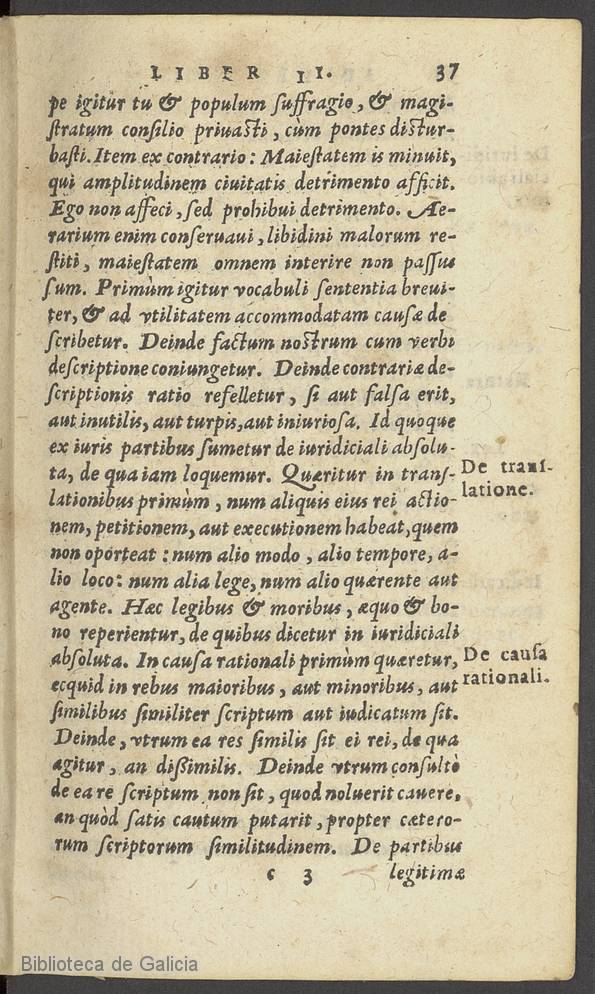 LIBER II. 37
pe igitur tu & populum ſuffragio, & magi-
ſtratum conſilio priuaſti, cùm pontes diſtur-
baſti. Item ex contrario: Maieſtatem is minuit,
qui amplitudinem ciuitatis detrimento afficit.
Ego non affeci, ſed prohibui detrimento. Ae-
rarium enim conſeruaui, libidini malorum re-
ſtiti, maieſtatem omnem interire non paſſus
ſum. Primùm igitur vocabuli ſententia breui-
ter, & ad vtilitatem accommodatam cauſæ de
ſcribetur. Deinde factum noſtrum cum verbi
deſcriptione coniungetur. Deinde contrariæ de-
ſcriptionis ratio refelletur, ſi aut falſa erit,
aut inutilis, aut turpis, aut iniurioſa. Id quoque
ex iuris partibus ſumetur de iuridiciali abſolu-
ta, de qua iam loquemur. Quæritur in tranſ-
De tranſ-
lationibus primùm, num aliquis eius rei actio-
latione.
nem, petitionem, aut executionem habeat, quem
non oporteat: num alio modo, alio tempore, a-
lio loco: num alia lege, num alio quærente aut
agente. Hæc legibus & moribus, æquo & bo-
no reperientur, de quibus dicetur in iuridiciali
abſoluta. In cauſa rationali primùm quæretur,
De cauſa
ecquid in rebus maioribus, aut minoribus, aut
rationali.
ſimilibus ſimiliter ſcriptum aut iudicatum ſit.
Deinde, vtrum ea res ſimilis ſit ei rei, de qua
agitur, an diſſimilis. Deinde vtrum conſultò
de ea re ſcriptum non ſit, quod noluerit cauere,
an quòd ſatis cautum putarit, propter cætero-
rum ſcriptorum ſimilitudinem. De partibus
c 3 legitimæ
Biblioteca de Galicia